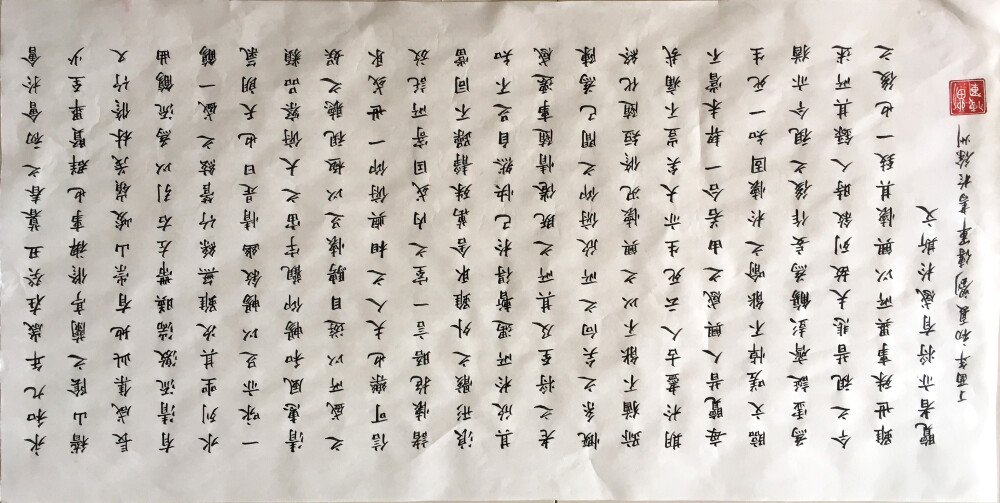 永和九年歲在癸丑暮春之初會於會
稽山陰之蘭亭脩禊事也群賢畢至少
長咸集此地有崇山峻嶺茂林脩竹又
有清流激湍映帶左右引以為流觴曲
水列坐其次雖無絲竹管絃之盛一觴
一詠亦足以暢敘幽情是日也天朗氣
清惠風和暢仰觀宇宙之大俯察品類
之盛所以遊目騁懷足以極視聽之娛
信可樂也夫人之相與俯仰一世或取
諸懷抱晤言一室之內或因寄所託放
浪形骸之外雖取舍萬殊靜躁不同當
其欣於所遇暫得於己快然自足不知
老之將至及其所之既倦情隨事遷感
慨系之矣向之所欣俯仰之間已為陳
跡猶不能不以之興懷況脩短隨化終
期於盡古人云死生亦大矣豈不痛哉
每覽昔人興感之由若合一契未嘗不
臨文嗟悼不能喻之於懷固知一死生
為虛誕齊彭殤為妄作後之視今亦猶
今之視昔悲夫故列敘時人錄其所述
雖世殊事異所以興懷其致一也後之
覽者亦將有感於斯文
丁酉年初夏劉偉軍書於徐州